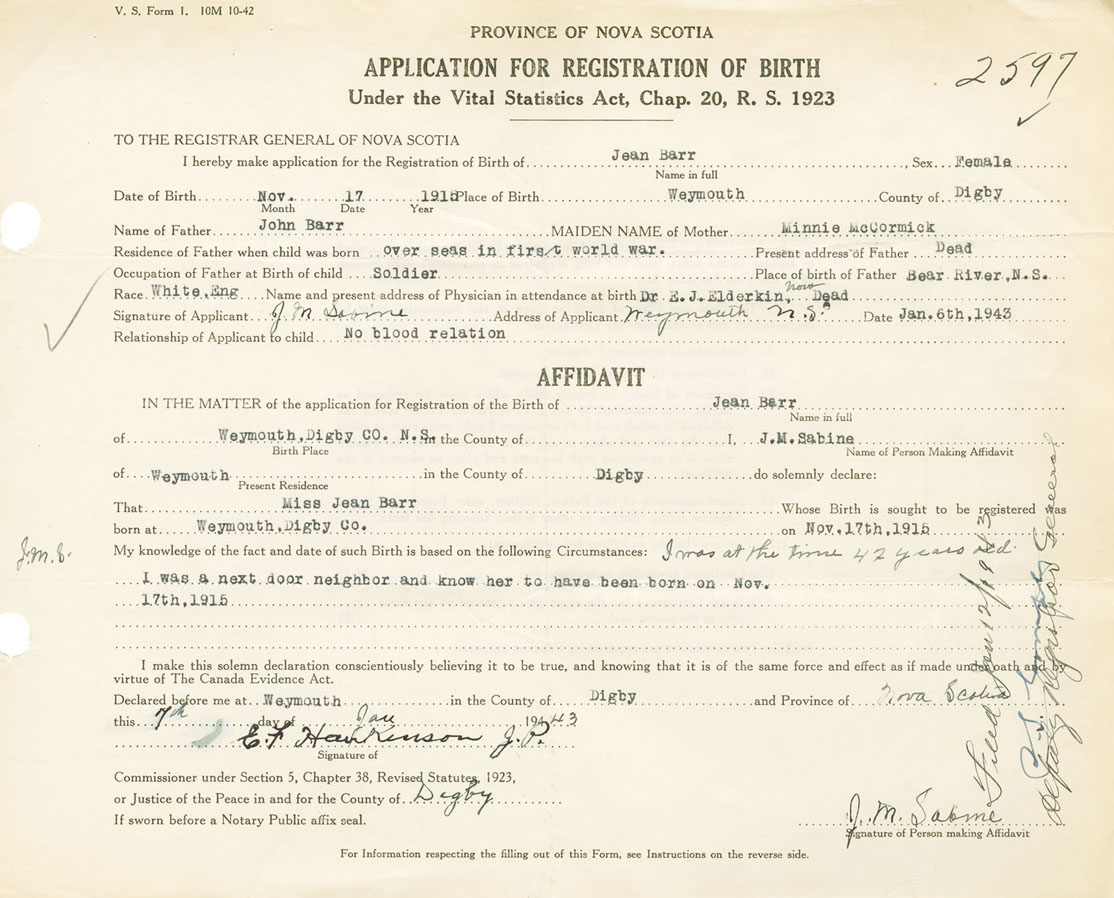 V. S. Form 1. 10M 10-42
PROVINCE OF NOVA SCOTIA
APPLICATION FOR REGISTRATION OF BIRTH
2597
Under the Vital Statistics Act, Chap. 20, R. S. 1923
TO THE REGISTRAR GENERAL OF NOVA SCOTIA
I hereby make application for the Registration of Birth of Jean Barr, Sex Female
Name in full
Date of Birth Nov. 17 1915 Place of Birth Weymouth County of Digby
Month Date Year
Name of Father John Barr MAIDEN NAME of Mother Minnie McCormick
Residence of Father when child was born over seas in first world war. Present address of Father Dead
Occupation of Father at Birth of child Soldier Place of birth of Father Bear River, N.S.
Race White, Eng Name and present address of Physician in attendance at birth Dr E.J.Elderkin, now Dead
Signature of Applicant J. M. Sabine Address of Applicant Weymouth N.S. Date Jan.6th,1943
Relationship of Applicant to child No blood relation
AFFIDAVIT
IN THE MATTER of the application for Registration of the Birth of Jean Barr
Name in full
of Weymouth,Digby CO. N.S. in the County of I, J.M.Sabine
Birth Place Name of Person Making Affidavit
of Weymouth in the County of Digby do solemnly declare:
Present Residence
That Miss Jean Barr Whose Birth is sought to be registered was
born at Weymouth,Digby Co. on Nov.17th,1915
J.M.S.
My knowledge of the fact and date of such Birth is based on the following Circumstances: I was at the time 42 years old.
I was a next door neighbor and know her to have been born on Nov.
17th,1915
I make this solemn declaration conscientiously believing it to be true, and knowing that it is of the same force and effect as if made under oath and by
virtue of The Canada Evidence Act.
Declared before me at Weymouth in the County of Digby and Province of Nova Scotia
this 7th day of Jan 194 43
E.F. Hankinson J.P.
Signature of
Commissioner under Section 5, Chapter 38, Revised Statutes, 1923,
or Justice of the Peace in and for the County of Digby
If sworn before a Notary Public affix seal.
J. M. Sabine
Signature of Person making Affidavit
For Information respecting the filling out of this Form, see Instructions on the reverse side.
Filed Jan 12/1943
Deputy Registrar General